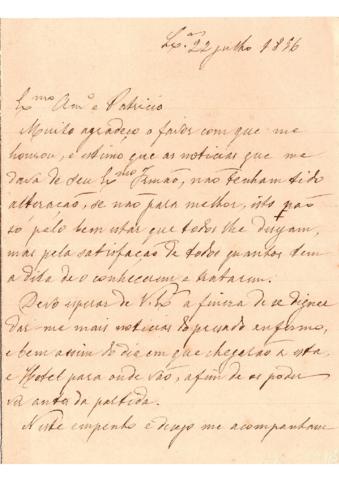 Lx.ª 22 julho 1896
Ex.mo Am.º e Patricio
Muito agradeço o favor com que me
honrou, e estimo que as noticias que me
dava de seu Ex.mo Irmão, não tenham tido
alteração, se não para melhor, isto não
só pelo bem estar que todos lhe desejam,
mas pela satisfação de todos quantos tem
a dita de o conhecerem e tratarem.
Devo esperar de V. Ex.ª a fineza de se digne
dar me mais noticias do presado enfermo,
e bem assim do dia em que chegarão a esta,
e Hotel para onde vão, afim de os poder
ver antes da partida.
Neste empenho e desejo me acompanham